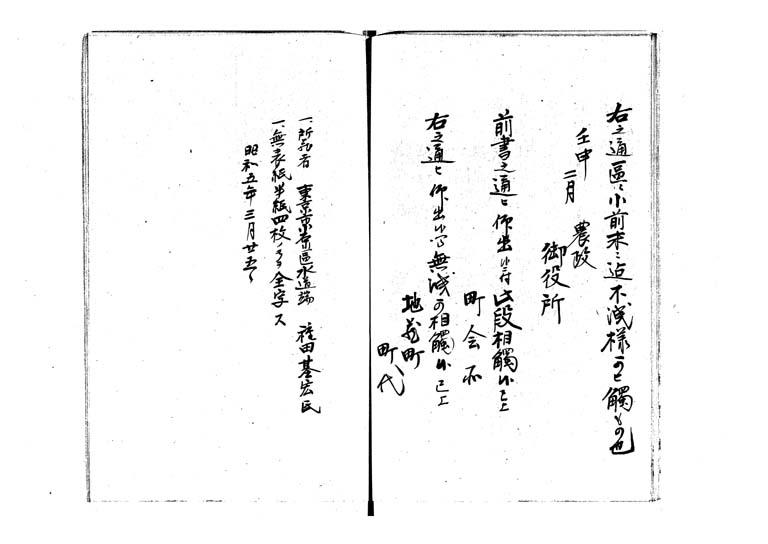 右之通區々小前末々迄不洩様可被觸もの也
壬申二月 農政
御役所
前書之通被仰出候ニ付此段相觸候已上
町会所
右之通被仰出候間無洩可相觸候已上
地蔵町
町代
一、所有者 東京市京橋區水道端 福田基宏氏
一、無表紙半紙四枚ノモノ全字ス
昭和五年三月廿五日